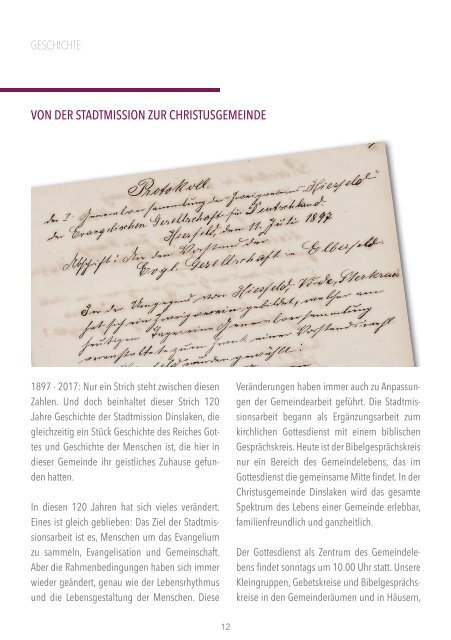 GESCHICHTE
VON DER STADTMISSION ZUR CHRISTUSGEMEINDE
Protokoll.
der I. Generalversammlung des Zweigvereins Hiesfeld
der Evangelischen Gesellschaft für Deutschland.
Hiesfeld, den 11. Juli 1897
Abschrift: An den Vorstand der
Evgl. Gesellschaft in Elberfeld.
In der Umgegend von Hiesfeld, Sterkrade
hat sich ein Zweigverein gebildet, welcher am
heutigen Tage eine Generalversammlung
veranstaltete zum Zweck einer Vorstandswahl.
wurden gewählt:
1897 - 2017: Nur ein Strich steht zwischen diesen
Zahlen. Und doch beinhaltet dieser Strich 120
Jahre Geschichte der Stadtmission Dinslaken, die
gleichzeitig ein Stück Geschichte des Reiches Got-
tes und Geschichte der Menschen ist, die hier in
dieser Gemeinde ihr geistliches Zuhause gefun-
den hatten.
In diesen 120 Jahren hat sich vieles verändert.
Eines ist gleich geblieben: Das Ziel der Stadtmis-
sionsarbeit ist es, Menschen um das Evangelium
zu sammeln, Evangelisation und Gemeinschaft.
Aber die Rahmenbedingungen haben sich immer
wieder geändert, genau wie der Lebensrhythmus
und die Lebensgestaltung der Menschen. Diese
Veränderungen haben immer auch zu Anpassun-
gen der Gemeindearbeit geführt. Die Stadtmis-
sionsarbeit begann als Ergänzungsarbeit zum
kirchlichen Gottesdienst mit einem biblischen
Gesprächskreis. Heute ist der Bibelgesprächskreis
nur ein Bereich des Gemeindelebens, das im
Gottesdienst die gemeinsame Mitte findet. In der
Christusgemeinde Dinslaken wird das gesamte
Spektrum des Lebens einer Gemeinde erlebbar,
familienfreundlich und ganzheitlich.
Der Gottesdienst als Zentrum des Gemeindele-
bens findet sonntags um 10.00 Uhr statt. Unsere
Kleingruppen, Gebetskreise und Bibelgesprächs-
kreise in den Gemeinderäumen und in Häusern,
12